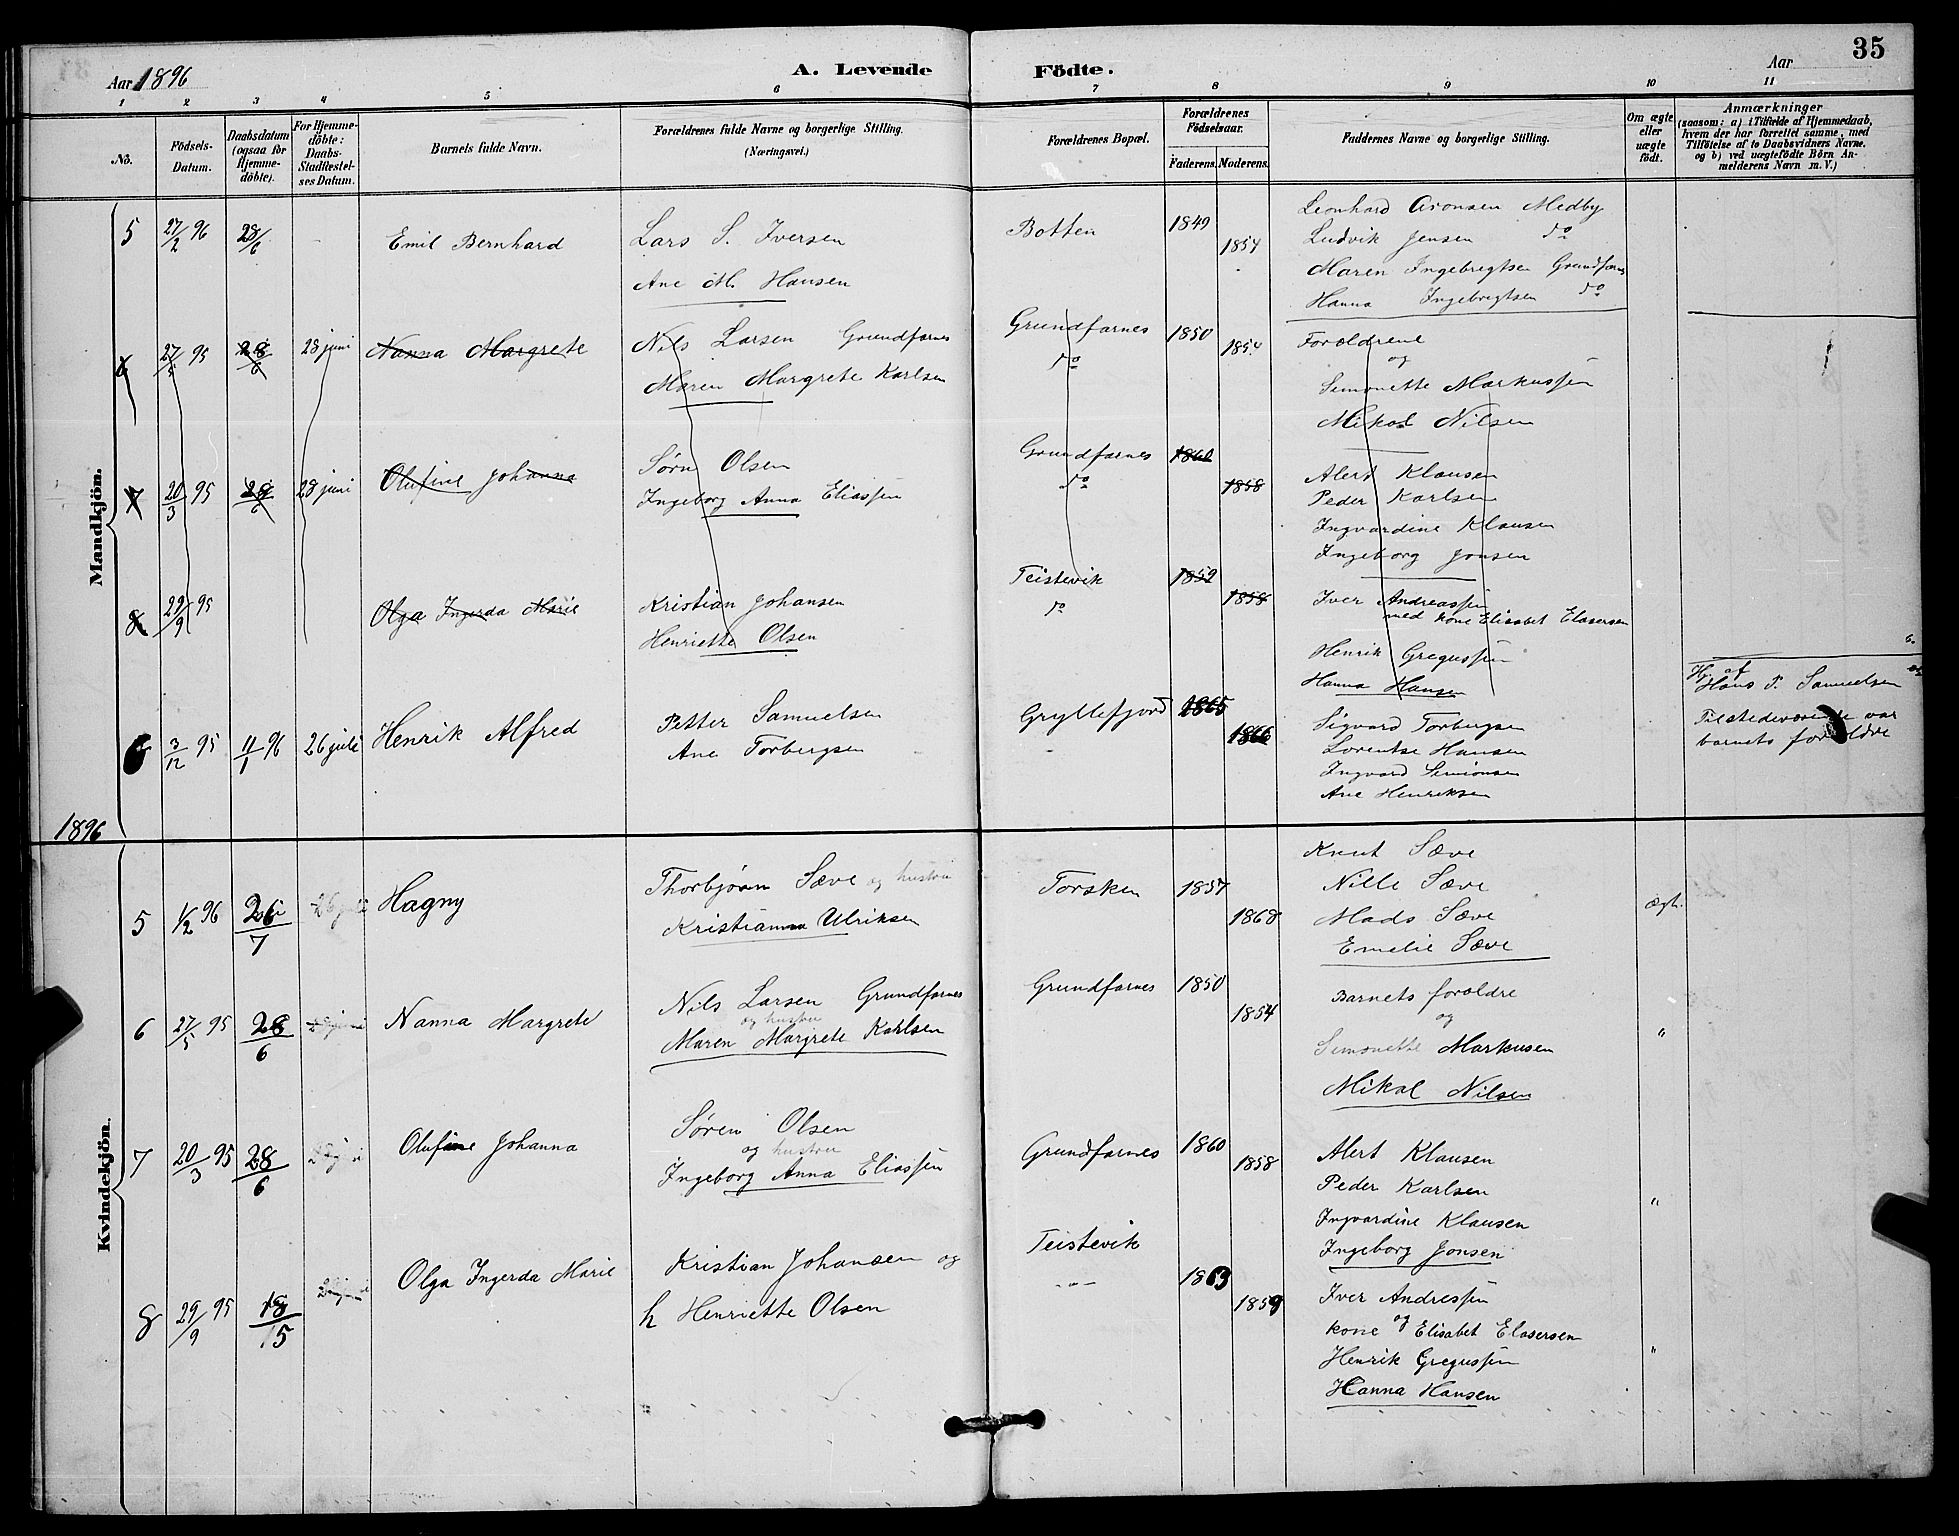 35
Aar 1896
A. Levende Födte.
Aar
1 2 3 4 5 6 7 8 9 10 11
No.
Födsels-Datum.
Daabsdatum (ogsaa for Hjemme-döbte).
For Hjemme-döbte: Daabs-Stadfæstel-ses Datum.
Barnets fulde Navn.
Forældrenes fulde Navne og borgerlige Stilling. (Næringsvei.)
Forældrenes Bopæl.
Forældrenes Födselsaar.
Faderens. Moderens.
Faddernes Navne og borgerlige Stilling.
Om ægte eller uægte födt.
Anmærkninger
(saasom: a) i Tilfælde af Hjemmedaab,
hvem der har forrettet samme, med
Tilföielse af to Daabsvidners Navne,
og b) ved uægtefödte Börn An-
melderens Navn m. V.)
Mandkjön.
5 27/2 96 28/6 Emil Bernhard
Lars S. Iversen
Ane M. Hansen
Botten 1849 1854
Leonhard Aronsen Medby
Ludvik Jensen do
Maren Ingebregtsen Grundfarnes
Hanna Ingebregtsen do
6 27/5 95 28/6 28 juni Nanna Margrete
Nils Larsen Grundfarnes
Maren Margrete Karlsen
Grundfarnes 1850 1854
do
Forældrene
og
Simonette Markussen
Mikal Nilsen
7 20/3 95 28/6 28 juni Olufine Johanna
Sørn Olsen
Ingeborg Anna Eliassen
Grundfarnes 1860 1858
do
Alert Klausen
Peder Karlsen
Ingvardine Klausen
Ingeborg Jonsen
8 29/9 95 Olga Ingerda Marie
Kristian Johansen
Henriette Olsen
Teistevik 1859 1858
do
Iver Andreassen
med kone Elisabet Elasersen
Henrik Gregussen
Hanna Hansen
6 3/12 95 11/1 96 26 juli Henrik Alfred
Petter Samuelsen
Ane Torbergsen
Gryllefjord 1865 1866
Sigvard Torbergsen
Lorentse Hansen
Ingvard Simonsen
Ane Henriksen
Hj. af
Hans P. Samuelsen
Tilstedeværende var
barnets forældre
1896
Kvindekjön.
5 1/2 96 26/7 26 juli Hagny
Thorbjörn Sæve og hustru
Kristianna Ulriksen
Torsken 1857 1868
Knut Sæve
Nille Sæve
Mads Sæve
Emelie Sæve
ægt.
6 27/5 95 28/6 28 juni Nanna Margrete
Nils Larsen Grundfarnes
og hustru
Maren Margrete Karlsen
Grundfarnes 1850 1854
Barnets forældre
og
Simonette Markusen
Mikal Nilsen
"
7 20/3 95 28/6 Olufine Johanna
Søren Olsen
og hustru
Ingeborg Anna Eliassen
Grundfarnes 1860 1858
Alert Klausen
Peder Karlsen
Ingvardine Klausen
Ingeborg Jonsen
"
8 29/9 95 Olga Ingerda Marie
Kristian Johansen og
h Henriette Olsen
Teistevik 1859
-"-
Iver Andressen
kone og Elisabet Elasersen
Henrik Gregussen
Hanna Hansen
"